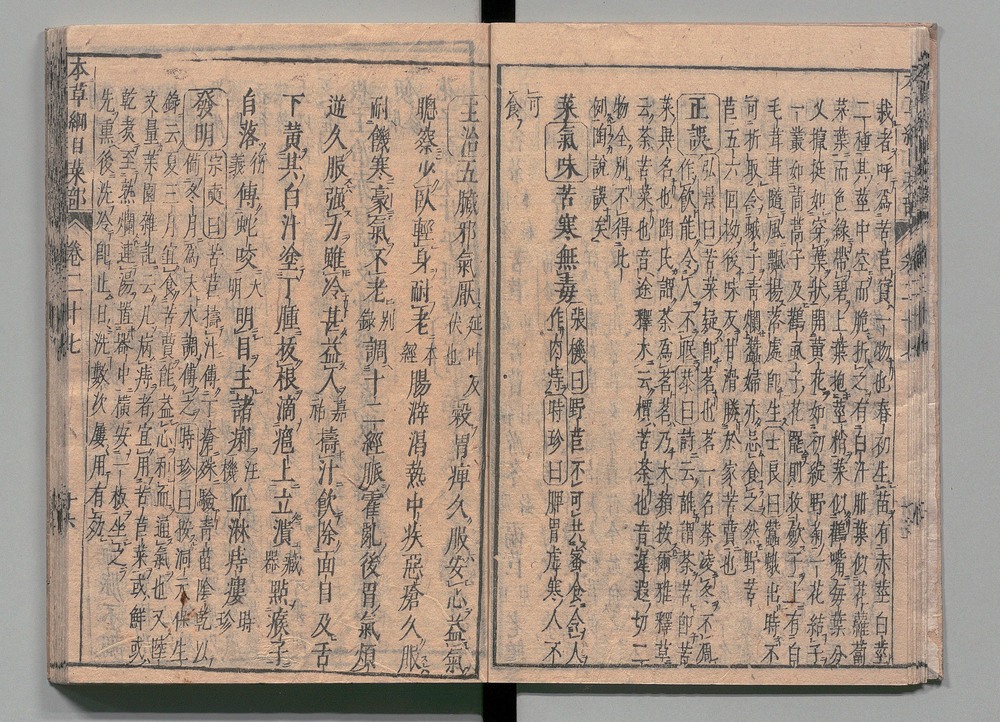 栽者呼為苦苣實一物也春初生苗有赤莖白莖
二種其莖中空而脆折之有白汁胼葉似花蘿蔔
菜葉而色綠帶碧上葉抱莖梢葉似鸛嘴每葉分
叉攛挺如穿葉狀開黃花如初綻野菊一花結子
一叢如茼蒿子及鶴虱子花罷則收斂子上有白
毛茸茸隨風飄揚落處即生士良曰蠶蛾出時不
可折取令蛾子青爛蠶婦亦忌食之然野苦
苣五六回拗後味反甘滑勝於家苦蕒也
正誤
弘景曰苦菜疑即茗也茗一名荼凌冬不凋
作飲能令人不眠恭曰詩云誰謂荼苦即苦
菜異名也陶氏謂荼為茗茗乃木類按爾雅釋草
云荼苦菜也音途釋木云檟苦荼也音遲遐切二
物全別不得此
例陶說誤矣
菜氣味苦寒無毒
張機曰野苣不可共蜜食令人
作肉痔時珍曰脾胃虛寒人不
可
食
主治五臟邪氣厭延叶反伏也穀胃痺久服安心益氣
聰察少臥輕身耐老本經腸澼渴熱中疾惡瘡久服
耐饑寒豪氣不老別錄調十二經脈霍亂後胃氣煩
逆久服強力雖冷甚益人嘉祐擣汁飲除面目及舌
下黃其白汁塗丁腫拔根滴癰上立潰藏器點瘊子
自落衍義傅蛇咬大明明目主諸痢汪機血淋痔瘻時珍
發明
宗奭曰苦苣擣汁傅丁瘡殊驗青苗陰乾以
備冬月為末水調傅之時珍曰按洞天保生
錄云夏三月宜食苦蕒能益心和血通氣也又陸
文量菽園雜記云凡病痔者宜用苦苣菜或鮮或
乾煮至熟爛連湯置器中橫安一板坐之
先熏後洗冷即止日洗數次屢用有效
本草綱目菜部 卷二十七 十六